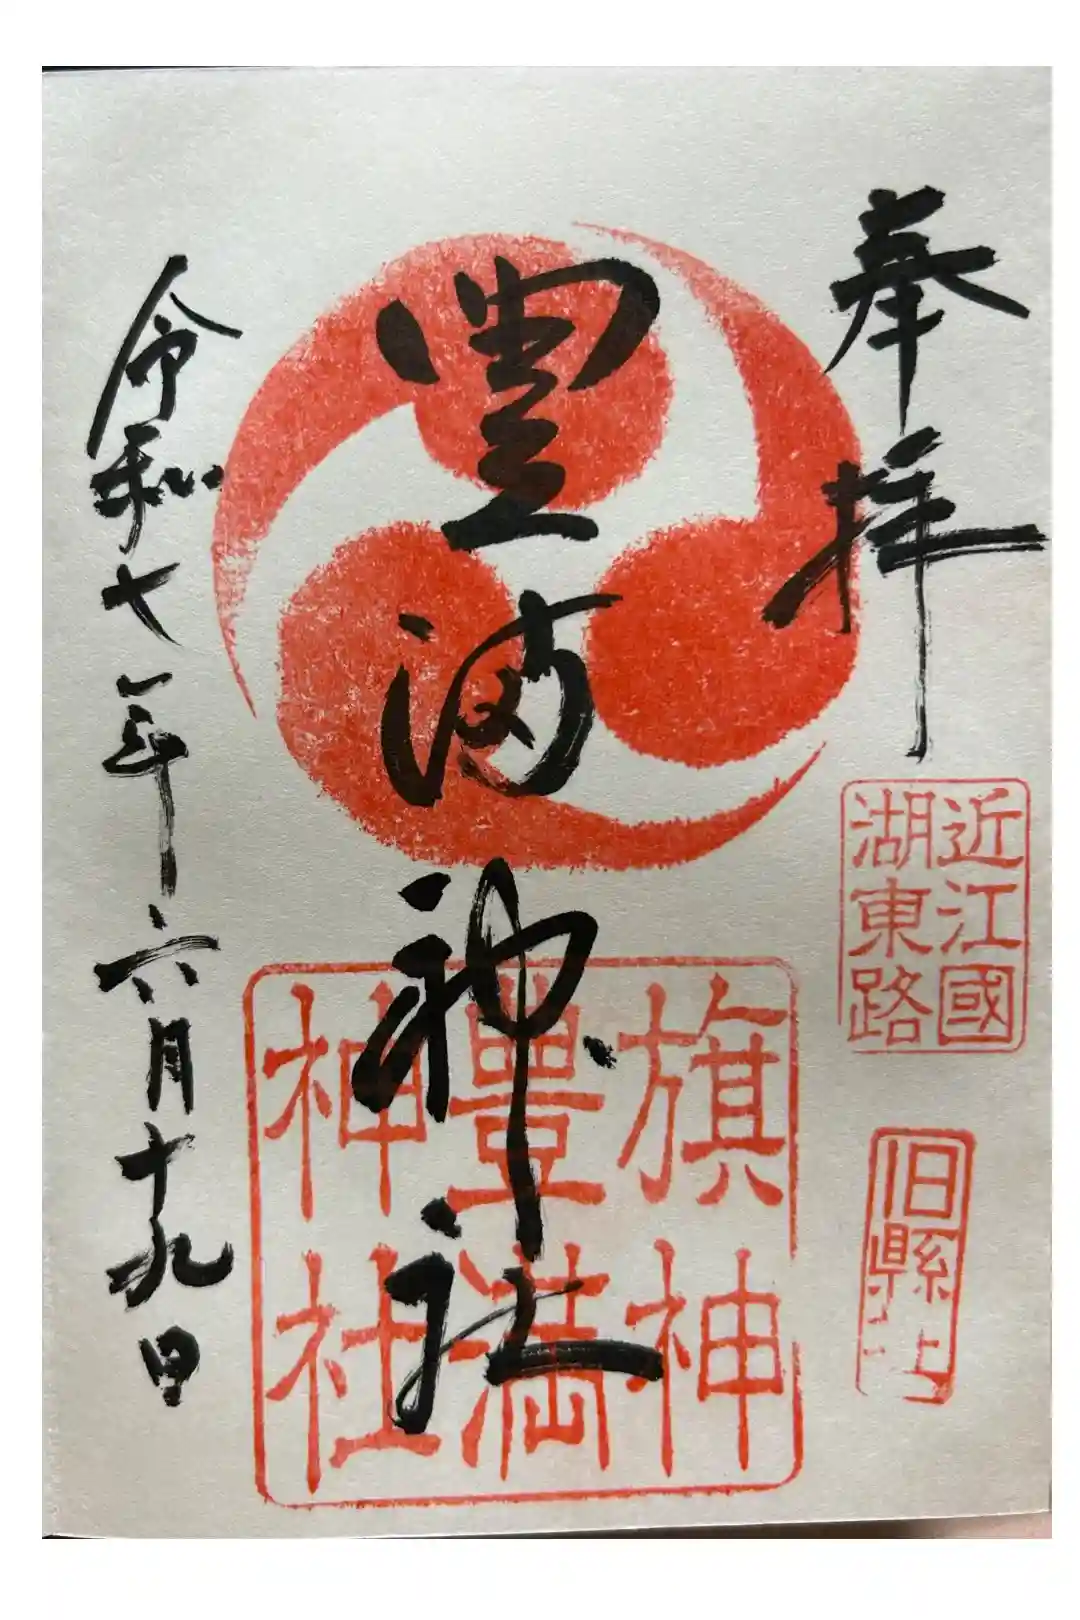 奉拝
近江國
湖東路
旧縣社
豊満神社
旗神
豊満
神社
令和七年六月十九日